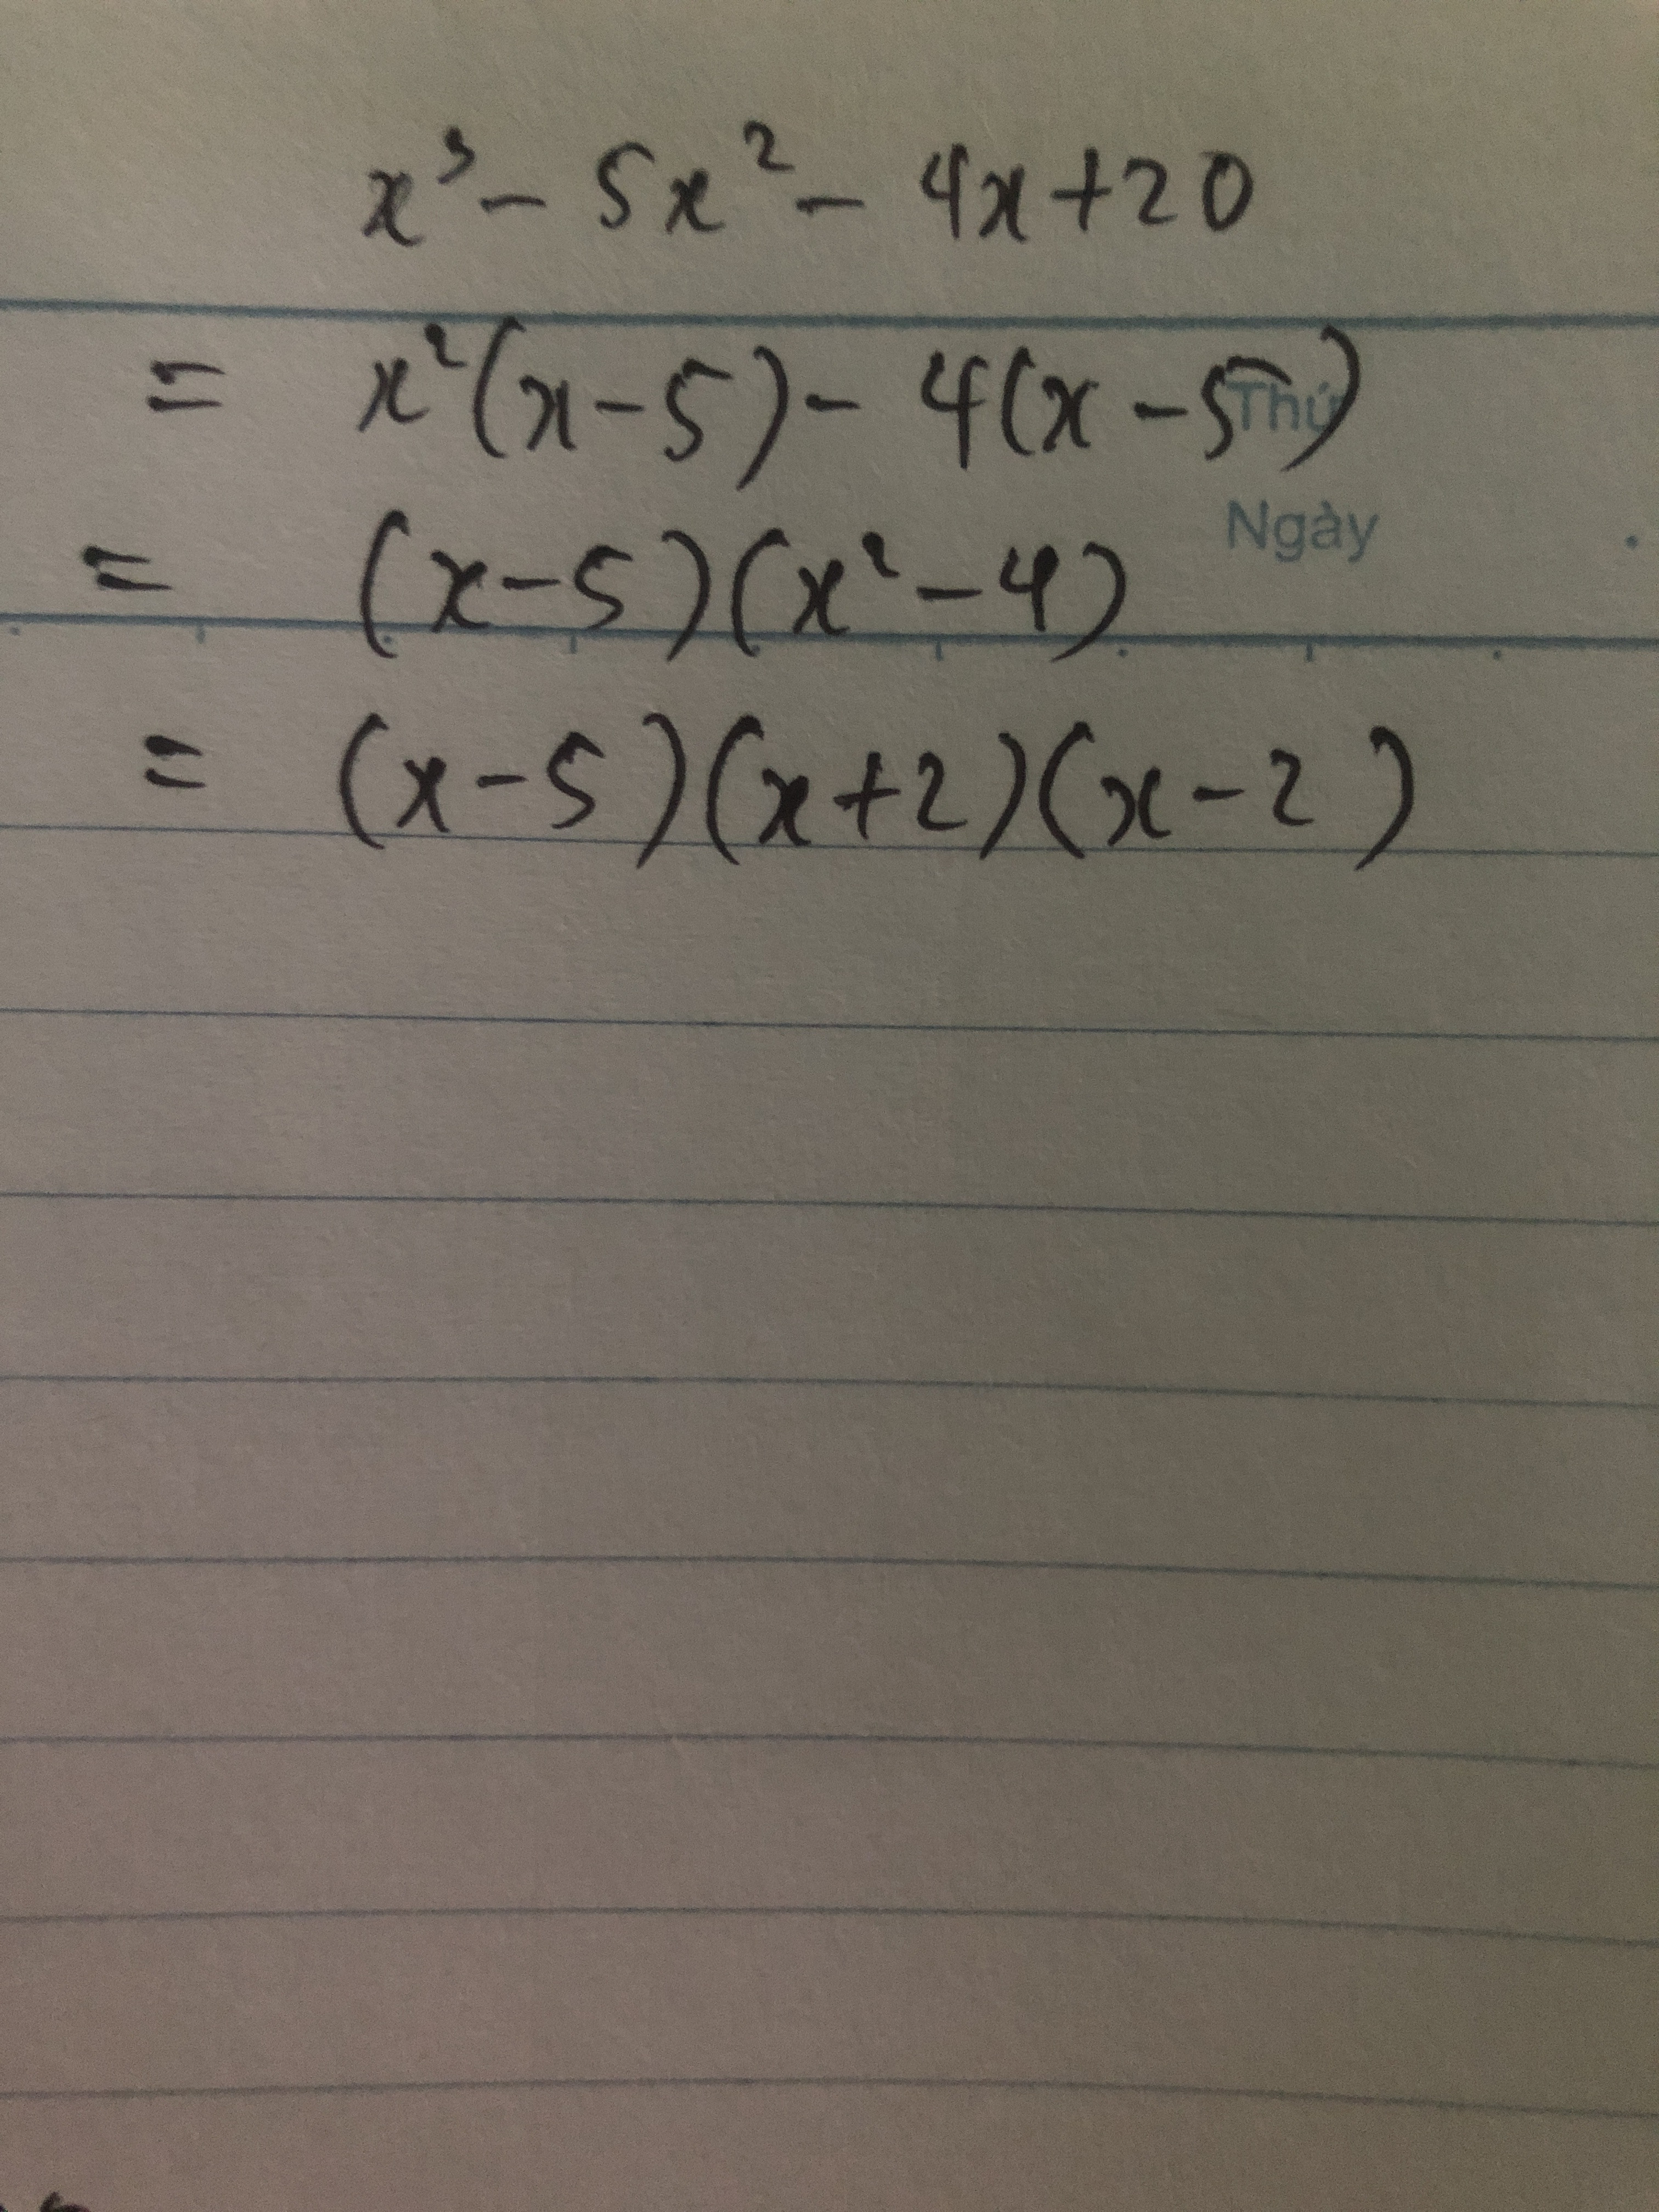 x³ - 5x² - 4x + 20
= x²(x - 5) - 4(x - 5)
Thứ
Ngày
= (x - 5)(x² - 4)
= (x - 5)(x + 2)(x - 2)